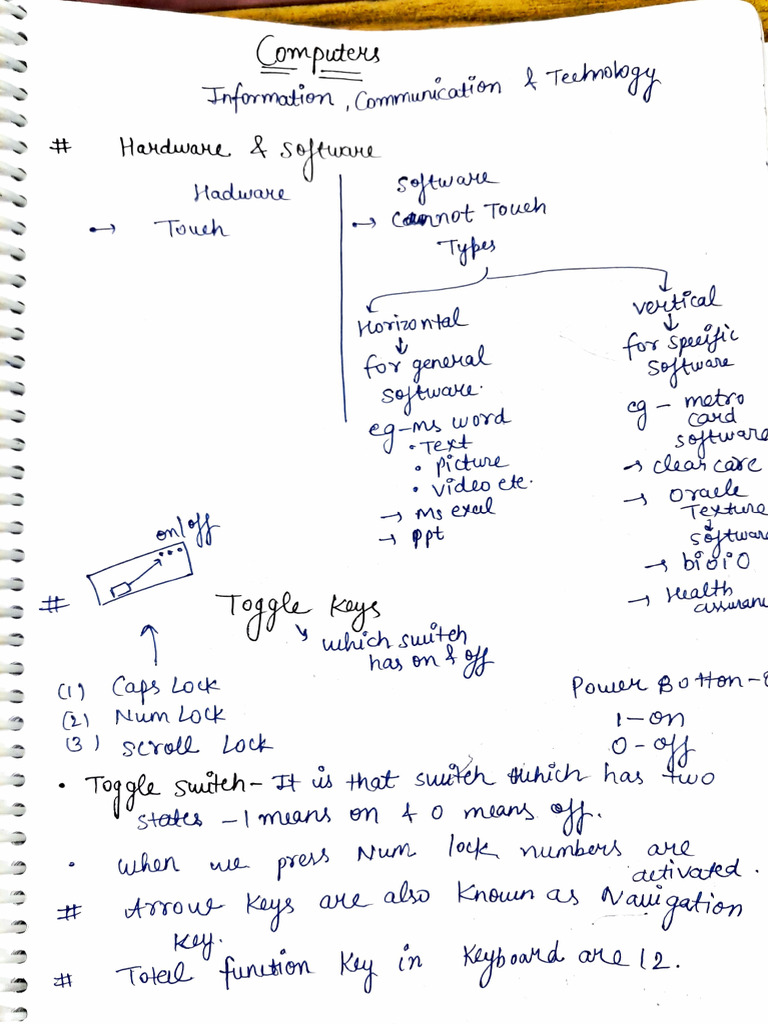 Computers
Information, Communication & Technology
# Hardware & Software
Hadware
→ Touch
Software
→ Cannot Touch
Types
Horizontal
↓
for general
software.
eg - ms word
• Text
• picture
• video etc.
→ Ms excel
→ ppt
vertical
↓
for specific
software
eg - metro
card
software
→ clear care
→ Oracle
Texture
↓
software
→
→ Health
assuran
on/off
# Toggle Keys
↘ which switch
has on & off
(1) Caps Lock
(2) Num Lock
(3) Scroll Lock
Power Botton -
1 - on
0 - off
• Toggle switch - It is that switch which has two
states - 1 means on & 0 means off.
• When we press Num lock numbers are
activated.
# Arrow Keys are also Known as Navigation
Key.
# Total function Key in Keyboard are 12.